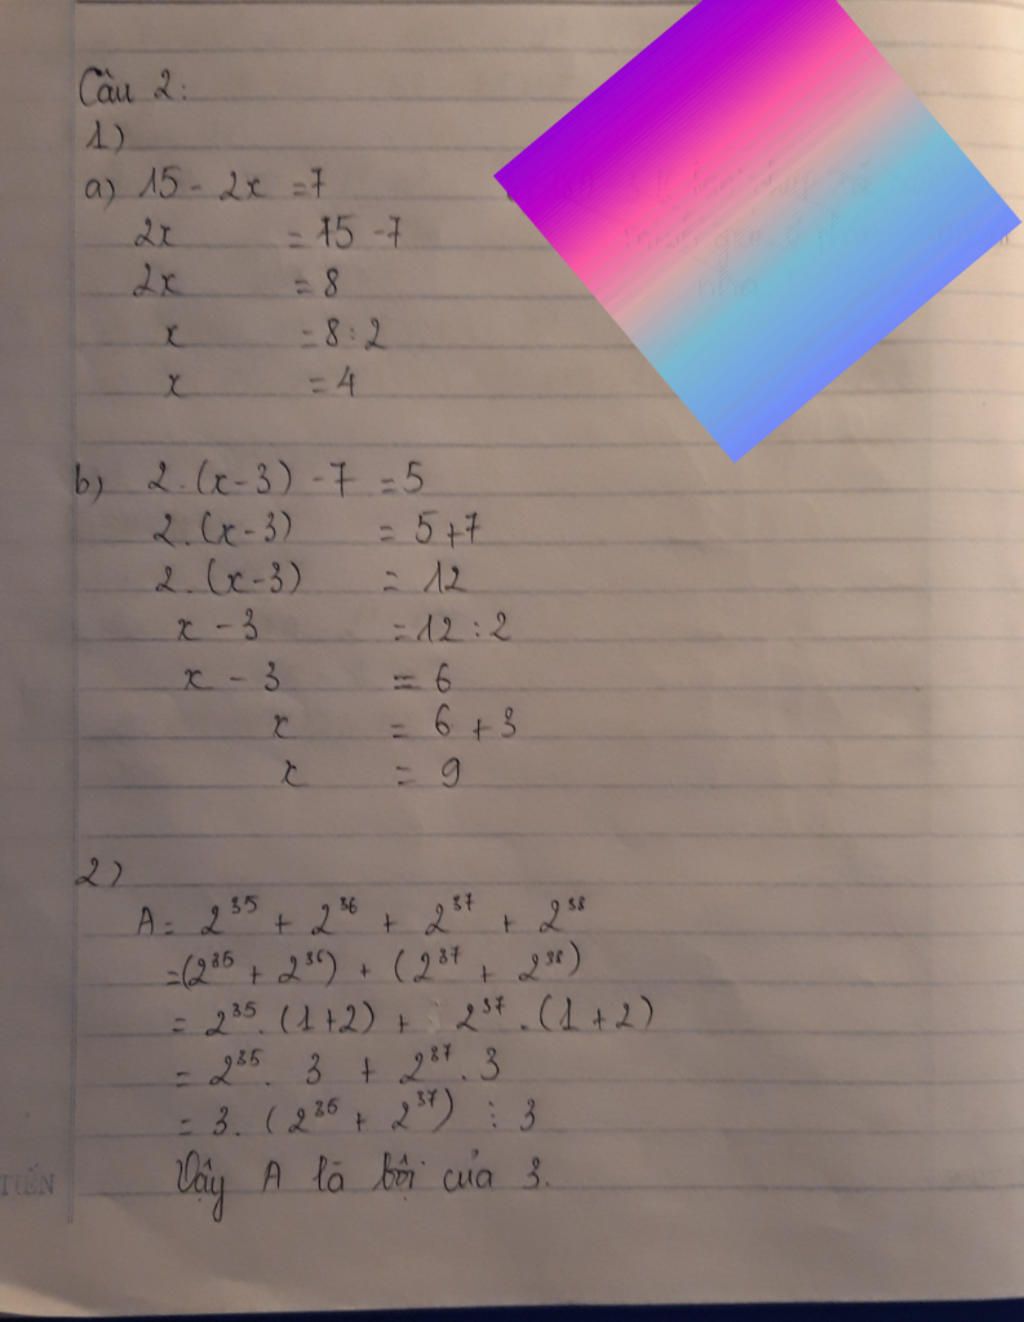 Câu 2:
1)
a) 15 - 2x = 7
2x = 15 - 7
2x = 8
x = 8 : 2
x = 4
b) 2.(x-3) - 7 = 5
2.(x-3) = 5+7
2.(x-3) = 12
x - 3 = 12 : 2
x - 3 = 6
x = 6 + 3
x = 9
2)
A = 2³⁵ + 2³⁶ + 2³⁷ + 2³⁸
= (2³⁵ + 2³⁶) + (2³⁷ + 2³⁸)
= 2³⁵.(1+2) + 2³⁷.(1+2)
= 2³⁵. 3 + 2³⁷. 3
= 3.(2³⁵ + 2³⁷) ⋮ 3
Vậy A là bội của 3.
TIẾN